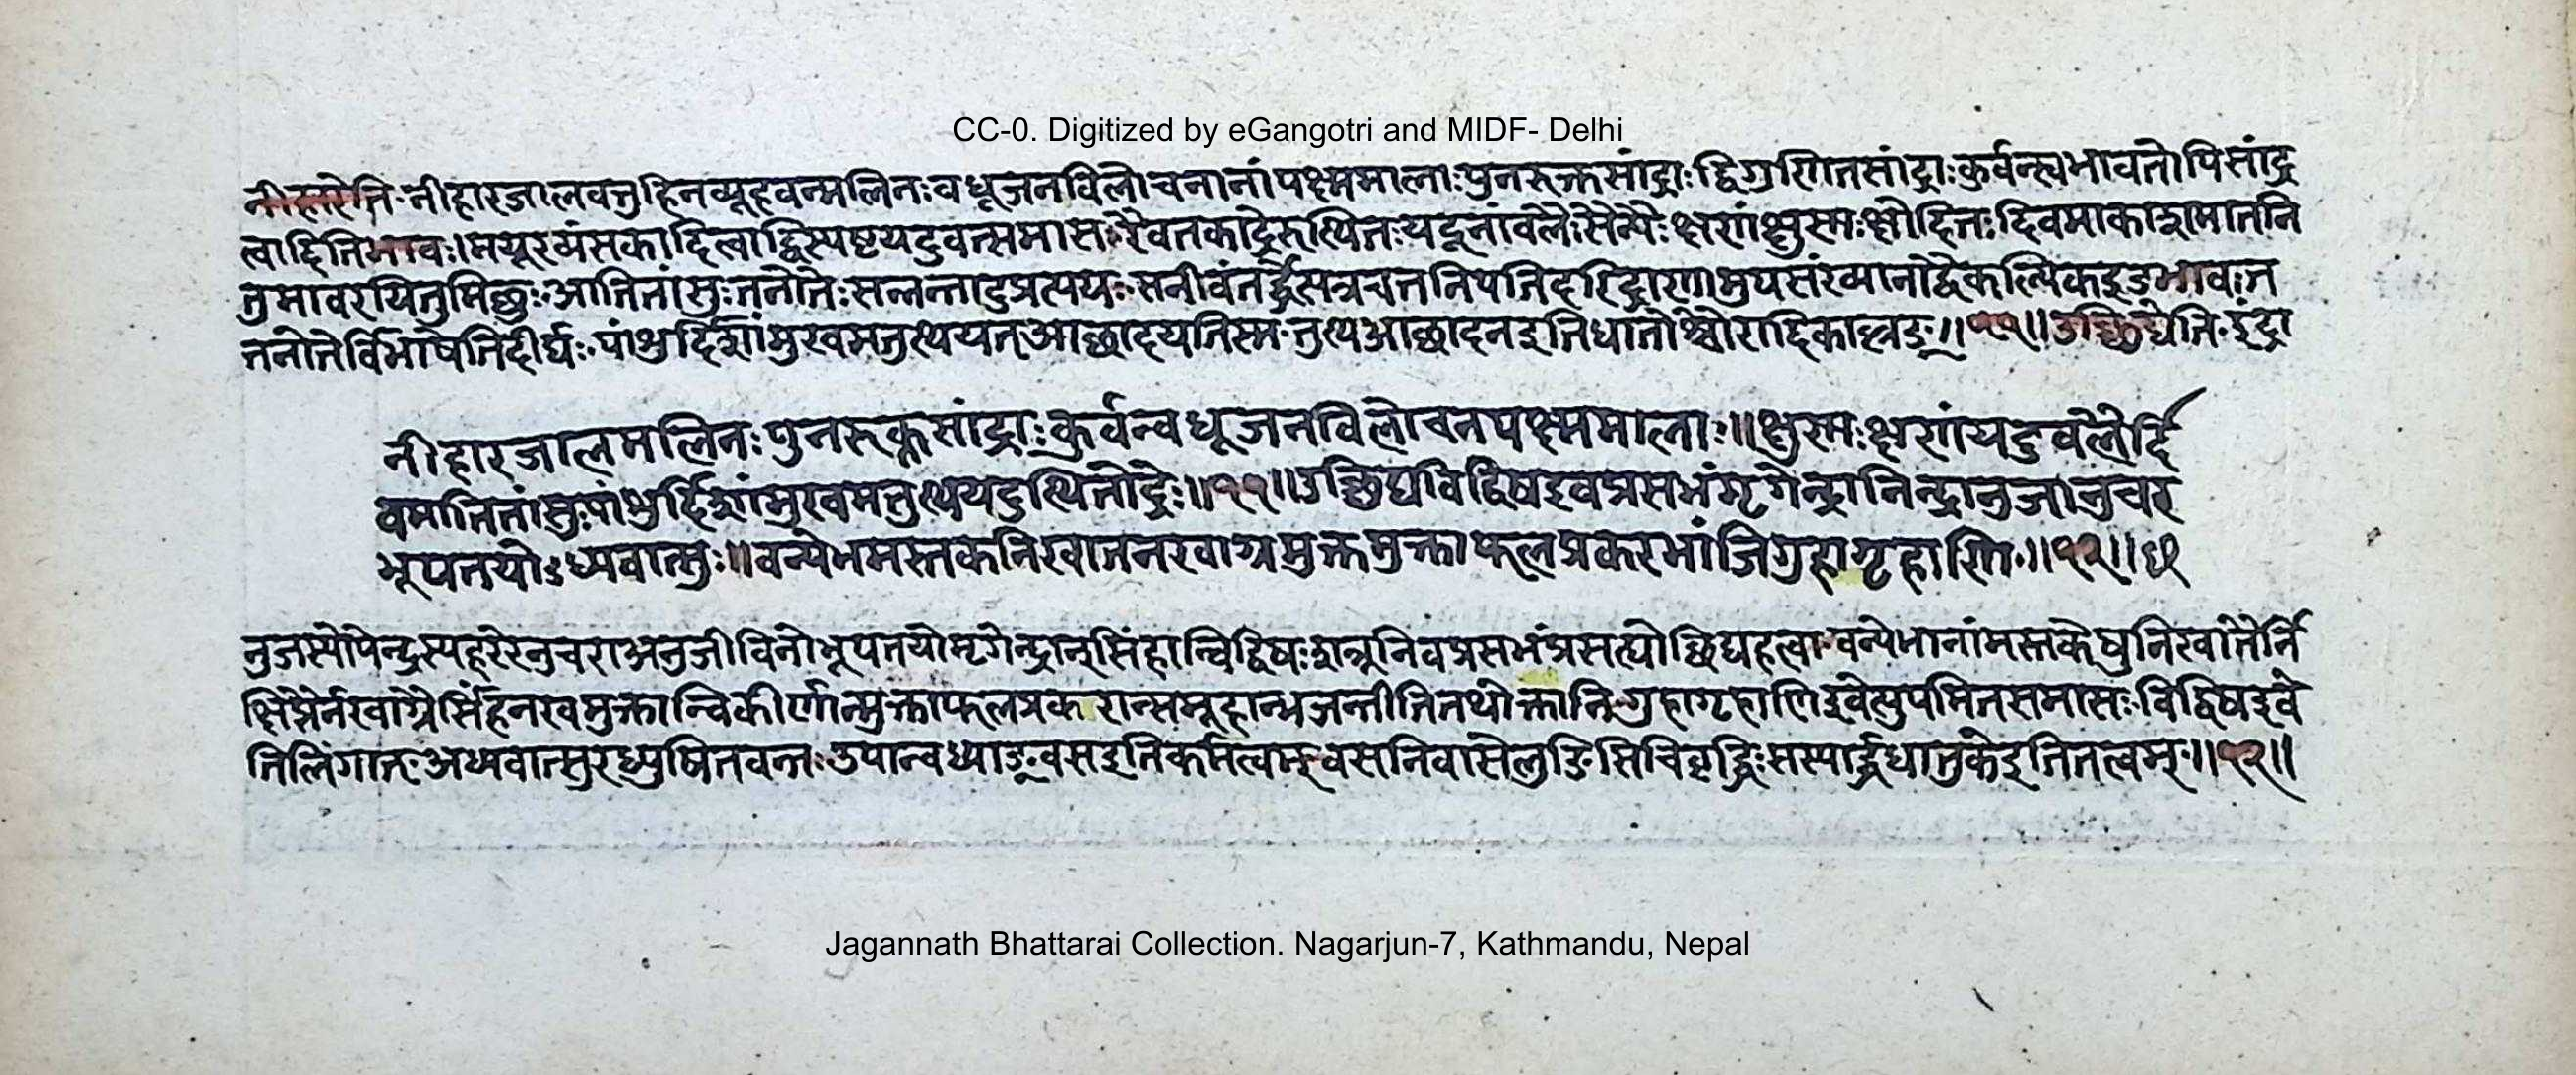 CC-0. Digitized by eGangotri and MIDF- Delhi
नीहारेति नीहारजालवत्तुहिनव्यूहवन्मलिनः वधूजनविलोचनानां पक्ष्ममालाः पुनरुक्तसांद्राः द्विगुणितसांद्राः कुर्वन्स्वभावतोपि सांद्र
त्वादितिभावः। मयूरव्यंसकादित्वाद्विस्पष्टपटुवत्समासः रैवतकाद्रेरुत्थितः यदूनां बलैः सैन्यैः क्षणं क्षुस्मः क्षोदितः दिवमाकाशमातनि
तुमावरयितुमिच्छुः आतितांसुः तनोतेः सन्नन्तादुप्रत्ययः सनीवंतर्द्धेत्यत्र तनिपतिदरिद्राणामुपसंख्यानाद्वैकल्पिक इडभावः त
तनोतेर्विभाषेति दीर्घः पांशुर्दिशां मुखमतुत्थयत् आच्छादयतिस्म तुत्थ आच्छादन इति धातोश्चौरादिकाल्लङ् ॥५१॥ उच्छिद्येति इंद्रा
नीहारजालमलिनः पुनरुक्तसांद्राः कुर्वन्वधूजनविलोचनपक्ष्ममालाः॥ क्षुस्मः क्षणं यदुबलैर्दि
वमातितांसुः पांशुर्दिशां मुखमतुत्थयदुत्थितोद्रेः॥५१॥ उच्छिद्य विद्विष इव प्रसभं मृगेन्द्रानिन्द्रानुजानुचर
भूपतयोऽध्यवात्सुः॥ वन्येभमस्तकनिखातनखाग्रमुक्तमुक्ताफलप्रकरभांजि गुहागृहाणि॥५२॥
नुजस्योपेन्द्रस्य हरेरनुचरा अनुजीविनो भूपतयो मृगेन्द्रान् सिंहान्विद्विषः शत्रूनिव प्रसभं प्रसह्योच्छिद्य हत्वा वन्येभानां मस्तकेषु निखातैर्नि
क्षिप्तैर्नखाग्रैः सिंहनखमुक्तान्विकीर्णान्मुक्ताफलप्रकरान्समूहान्भजन्तीति तथोक्तानि गुहागृहाणि इवेत्युपमितसमासः विद्विष इवे
तिलिंगात् अध्यवात्सुरध्युषितवन्तः उपान्वध्याङ्वस इति कर्मत्वम् वस निवासे लुङि सिचि वृद्धिः सस्यार्द्धधातुके इति तत्वम्॥५२॥
Jagannath Bhattarai Collection. Nagarjun-7, Kathmandu, Nepal